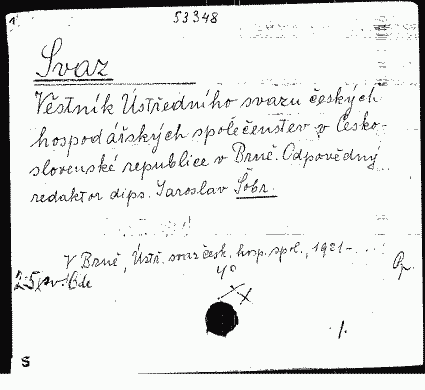 53348
Svaz
Věstník Ústředního svazu českých
hospodářských společenstev v Česko-
slovenské republice v Brně. Odpovědný
redaktor dips. Jaroslav Šobr.
V Brně, Ústř. svaz česk. hosp. spol., 1921-
4°
S